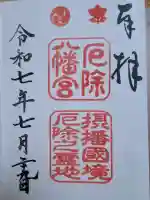 奉拝
厄除
八幡宮
摂播國境
厄除之霊地
令和七年七月